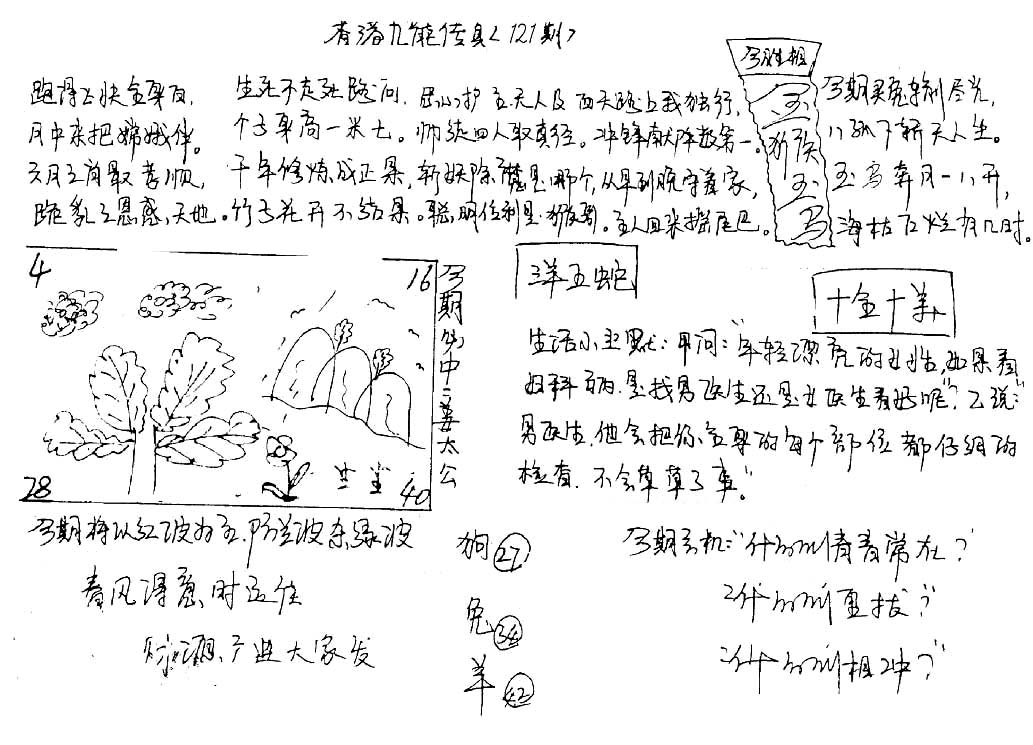 香港九龍传真<121期>
跑得飞快全身白,
月中来把嫦娥伴。
三月三肖最孝顺,
跪乳之恩感天地。
生死不走死路问.
个子身高一米七。
千年修炼成正果,
竹子花开不结果。
忠心护主天人
西天路上我独行,
师徒四人取真经。冲锋献阵数第一。
斩妖除魔是哪个,从早到晚守着家,
聪明伶利是猕猴。主人回来摇尾巴。
今期
玉
猴
玉
马
今期买兔剩尽光,
天人生。
玉马奔月一八开,
海枯石烂有几时。
4
16
28
40
今期的中二姜太公
三羊五蛇
十全十羊
生活小幽默:甲问:"年轻漂亮的女性,如果看
妇科病.是找男医生还是女医生看好呢"?乙说:"
男医生.他会把你全身的每个部位都仔细的
检查.不会草草了事。"
今期将以红波为主.防兰波杂绿波
春风得意时运佳
财源产进大家发
狗 27
兔
羊 42
今期玄机:"什么青春常在?
2什么
3什么相冲?"